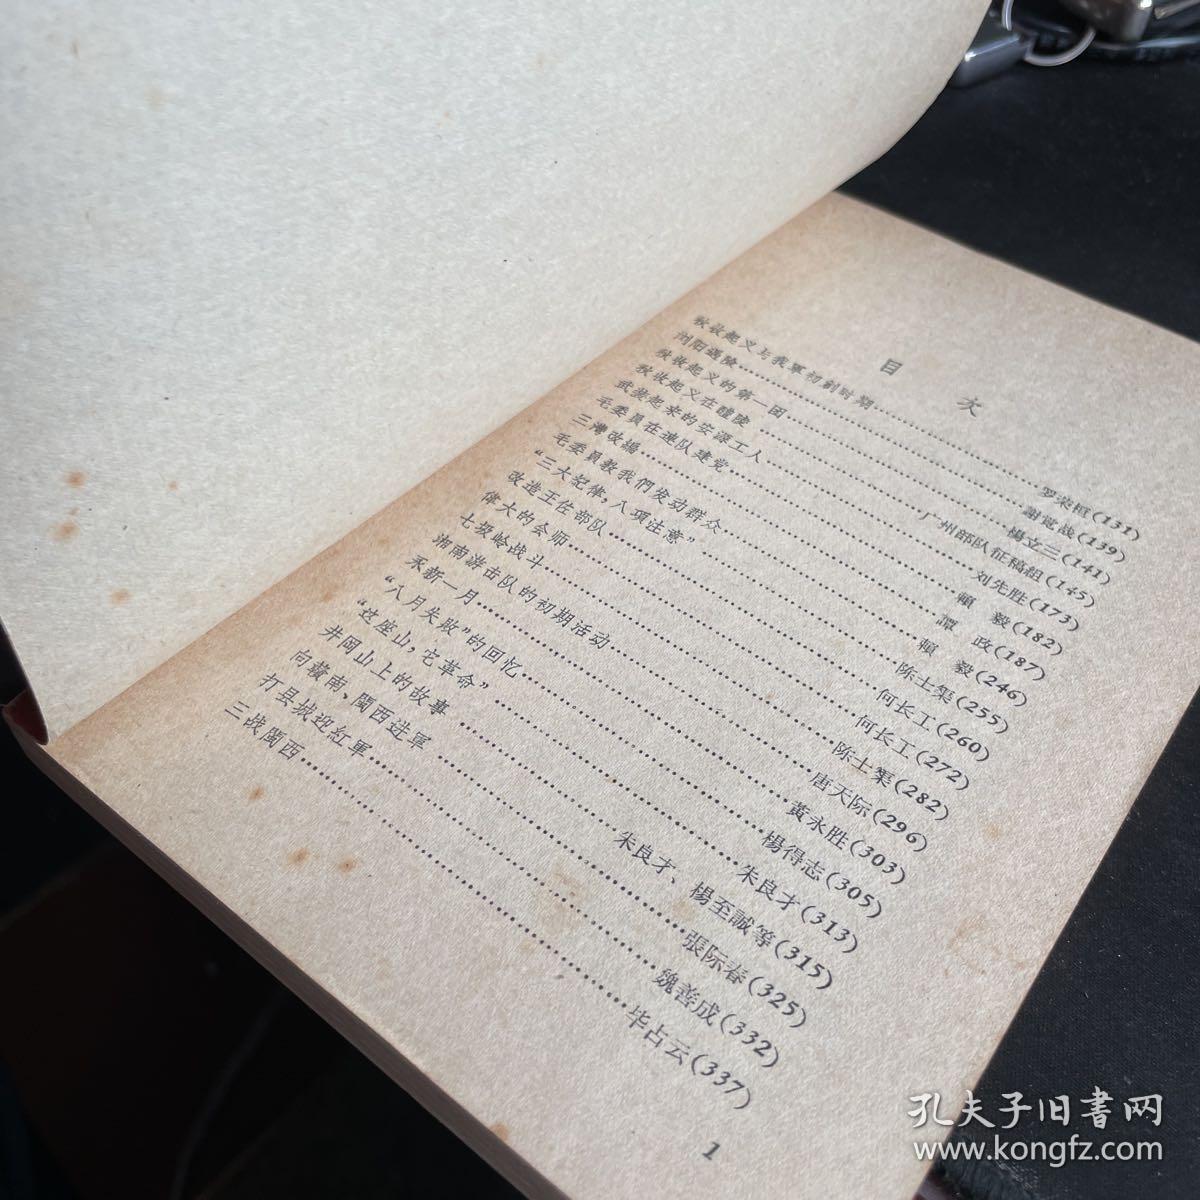 目 次
秋收起义与我軍初創时期……罗荣桓(131)
浏阳遇险……謝(139)
秋收起义的第一团……楊立三(141)
秋收起义在醴陵……广州部队征稿組(145)
武裝起来的安源工人……刘先胜(173)
毛委員在連队建党……賴 毅(182)
三灣改編……譚 政(187)
毛委員教我們发动群众……賴 毅(246)
“三大紀律,八項注意”……陈士榘(255)
改造王佐部队……何长工(260)
偉大的会师……何长工(272)
七圾岭战斗……陈士榘(282)
湘南游击队的初期活动……唐天际(296)
禾新一月……黃永胜(303)
“八月失敗”的回忆……楊得志(305)
“这座山,它革命”……朱良才(313)
井岡山上的故事……朱良才、楊至誠等(315)
向贛南、閩西进軍……張际春(325)
打县城迎紅軍……魏善成(332)
三战閩西……毕占云(337)
1
孔夫子旧書网
www.kongfz.com